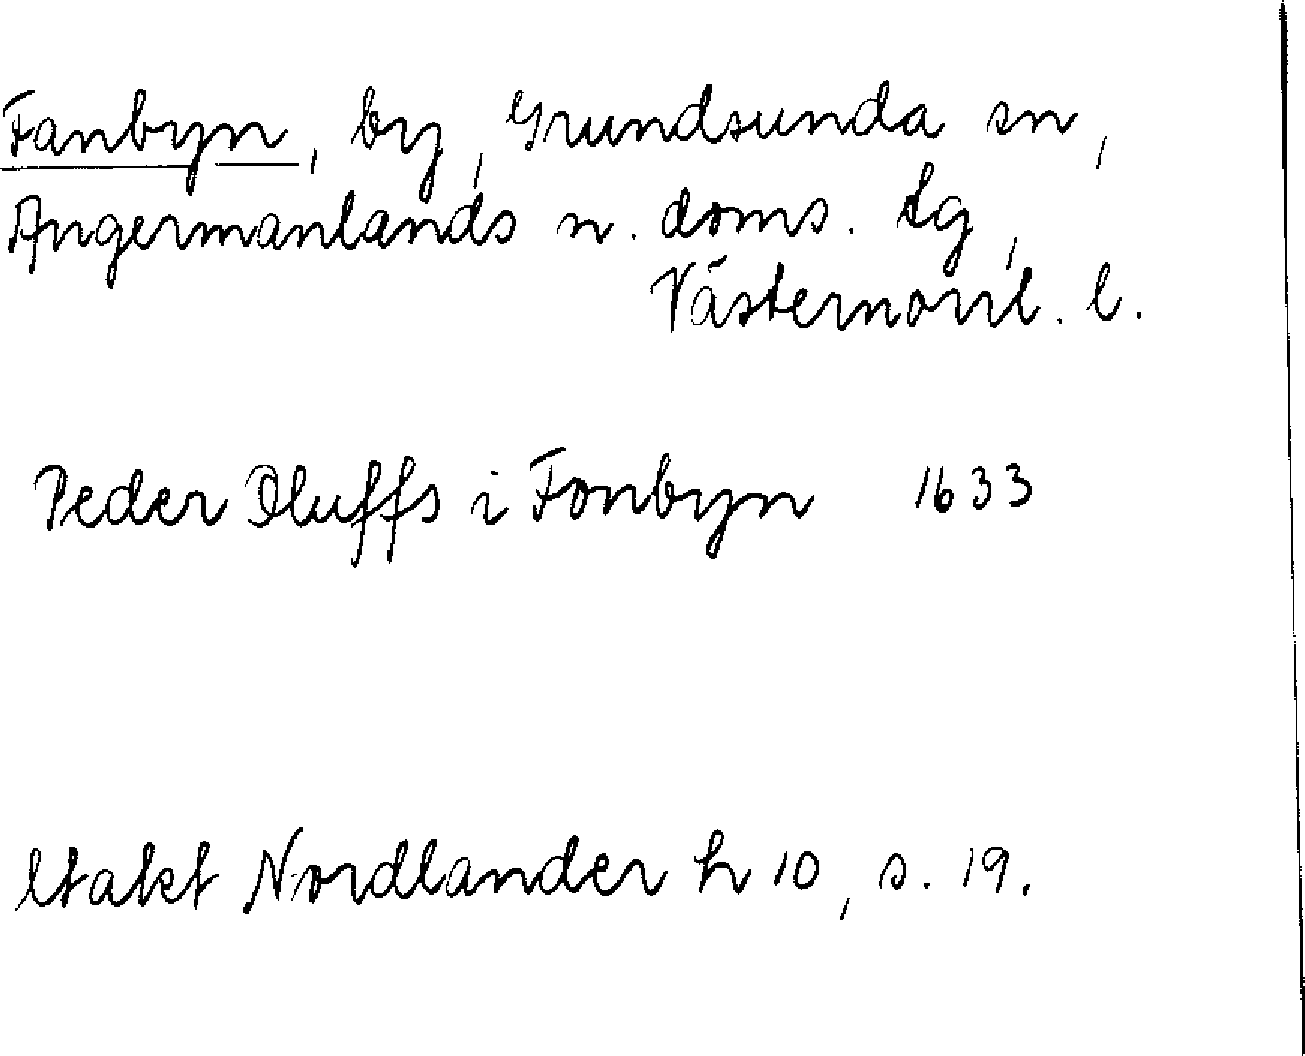 Fanbyn, by, Grundsunda sn,
Angermanlands n. doms. tg,
Västernorrl. l.
Peder Oluffs i Fonbyn 1633
Utakt Nordlander h 10, s. 19.